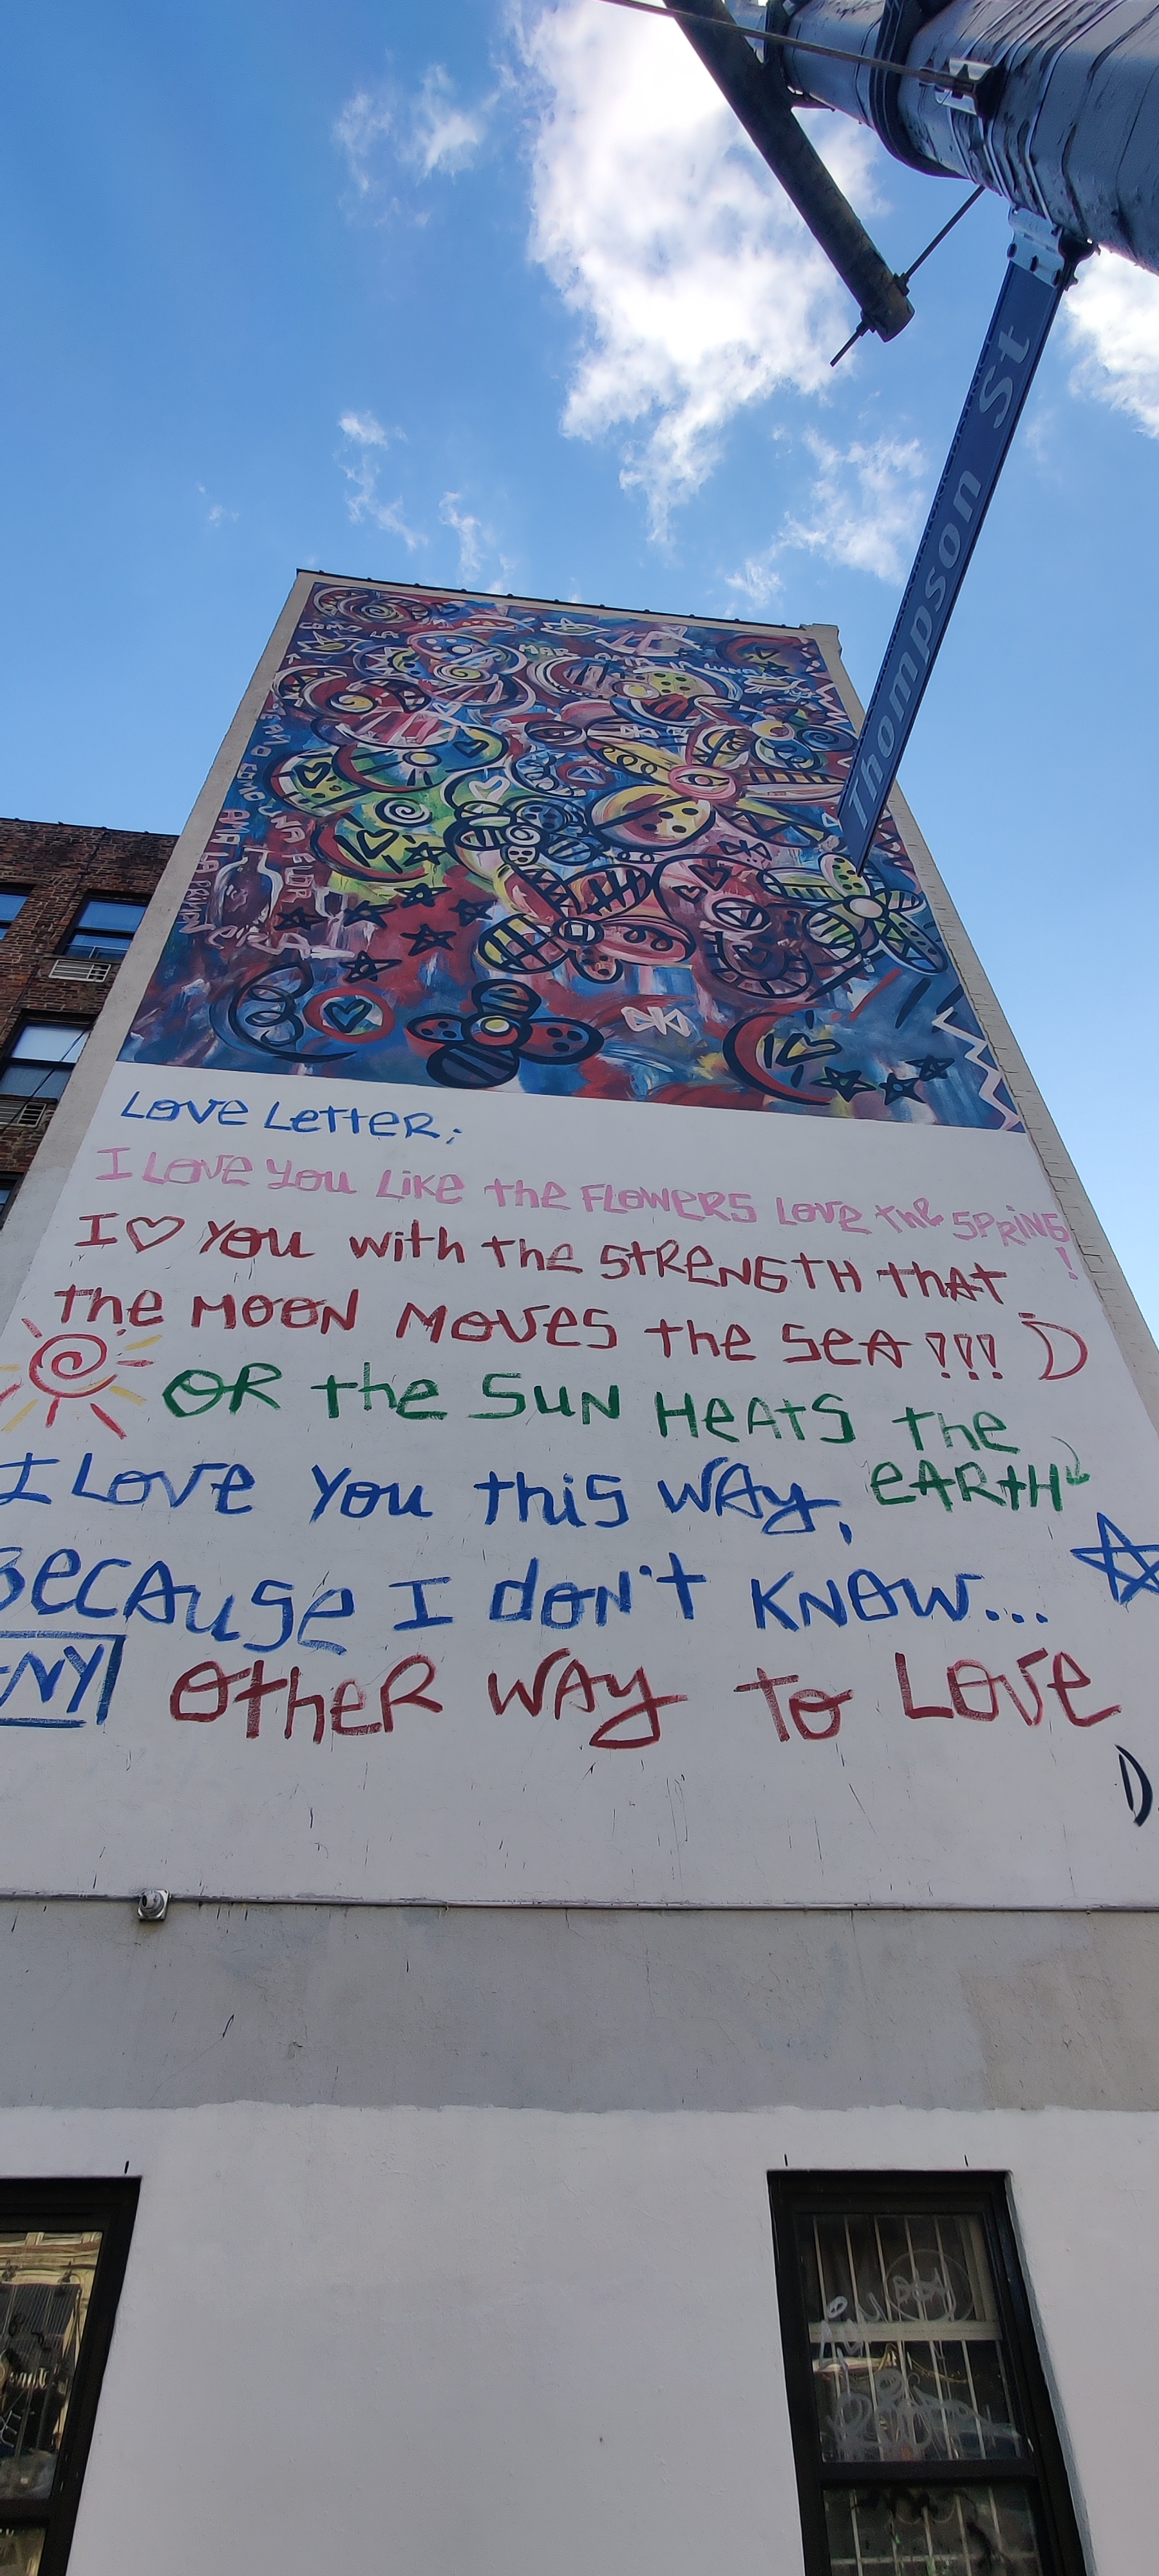 Thompson St
COMO LA
MAR AMA LA LUNA
COMO UNA FLOR
AMA LA
LOVE LETTER;
I LOVE YOU LIKE the FLOWERS LOVE the SPRING!
I ♡ YOU with the STRENGTH tHAT
the MOON MOVES the SEA!!!
OR the SUN HEATS the
EARTH
I LOVE YOU this WAY,
BECAUSE I don't KNOW...
OtHER WAY to LOVE